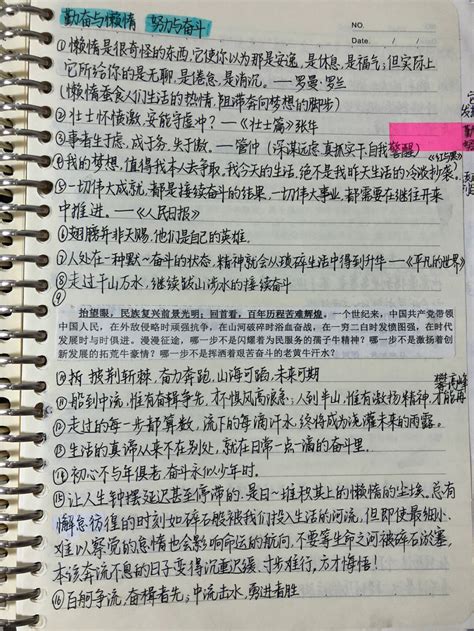 勤奋与懒惰 努力与奋斗
NO.
Date. / /
①懒惰是很奇怪的东西,它使你以为那是安逸,是休息,是福气;但实际上
它所给你的是无聊,是倦怠,是消沉。——罗曼·罗兰
(懒惰蚕食人们生活的热情,阻滞奔向梦想的脚步)
②壮士怀愤激,安能守虚冲?——《壮士篇》张华
③事者生于虑,成于务,失于傲。——管仲(深谋远虑 真抓实干 自我警醒)
④我的梦想,值得我本人去争取,我今天的生活,绝不是我昨天生活的冷淡抄袭。《红与黑》
⑤一切伟大成就,都是接续奋斗的结果,一切伟大事业,都需要在继往开来
中推进。——《人民日报》
⑥翅膀并非天赐,他们是自己的英雄。
⑦人处在一种默~奋斗的状态,精神就会从琐碎生活中得到升华——《平凡的世界》
⑧走过千山石水,继续跋山涉水的接续奋斗
⑨
抬望眼,民族复兴前景光明;回首看,百年历程苦难辉煌。一个世纪来,中国共产党带领
中国人民,在外敌侵略时顽强抗争,在山河破碎时浴血奋战,在一穷二白时发愤图强,在时代
发展时与时俱进。漫漫征途,哪一步不是闪耀着为民服务的孺子牛精神?哪一步不是激扬着创
新发展的拓荒牛豪情?哪一步不是挥洒着艰苦奋斗的老黄牛汗水?
⑩拆 披荆斩棘,奋力奔跑,山海可蹈,未来可期
⑪船到中流,惟有奋楫争先,才不惧风高浪急;人到半山,惟有激扬精神,才能再
攀高峰
⑫走过的每一步都算数,流下的每滴汗水,终将成为浇灌未来的雨露。
⑬生活的真谛从来不在别处,就在日常一点一滴的奋斗里。
⑭初心不与年俱老,奋斗永似少年时。
⑮让人生钟摆延迟甚至停滞的,是日~堆积其上的懒惰的尘埃。总有
懈怠彷徨的时刻如碎石般被我们投入生活的河流,但即使最细小、
难以察觉的怠惰也会影响命运的航向,不要等生命之河被碎石淤塞,
本该奔流不息的日子变得沉重迟缓、寸步难行,方才悔悟!
⑯百舸争流,奋楫者先;中流击水,勇进者胜